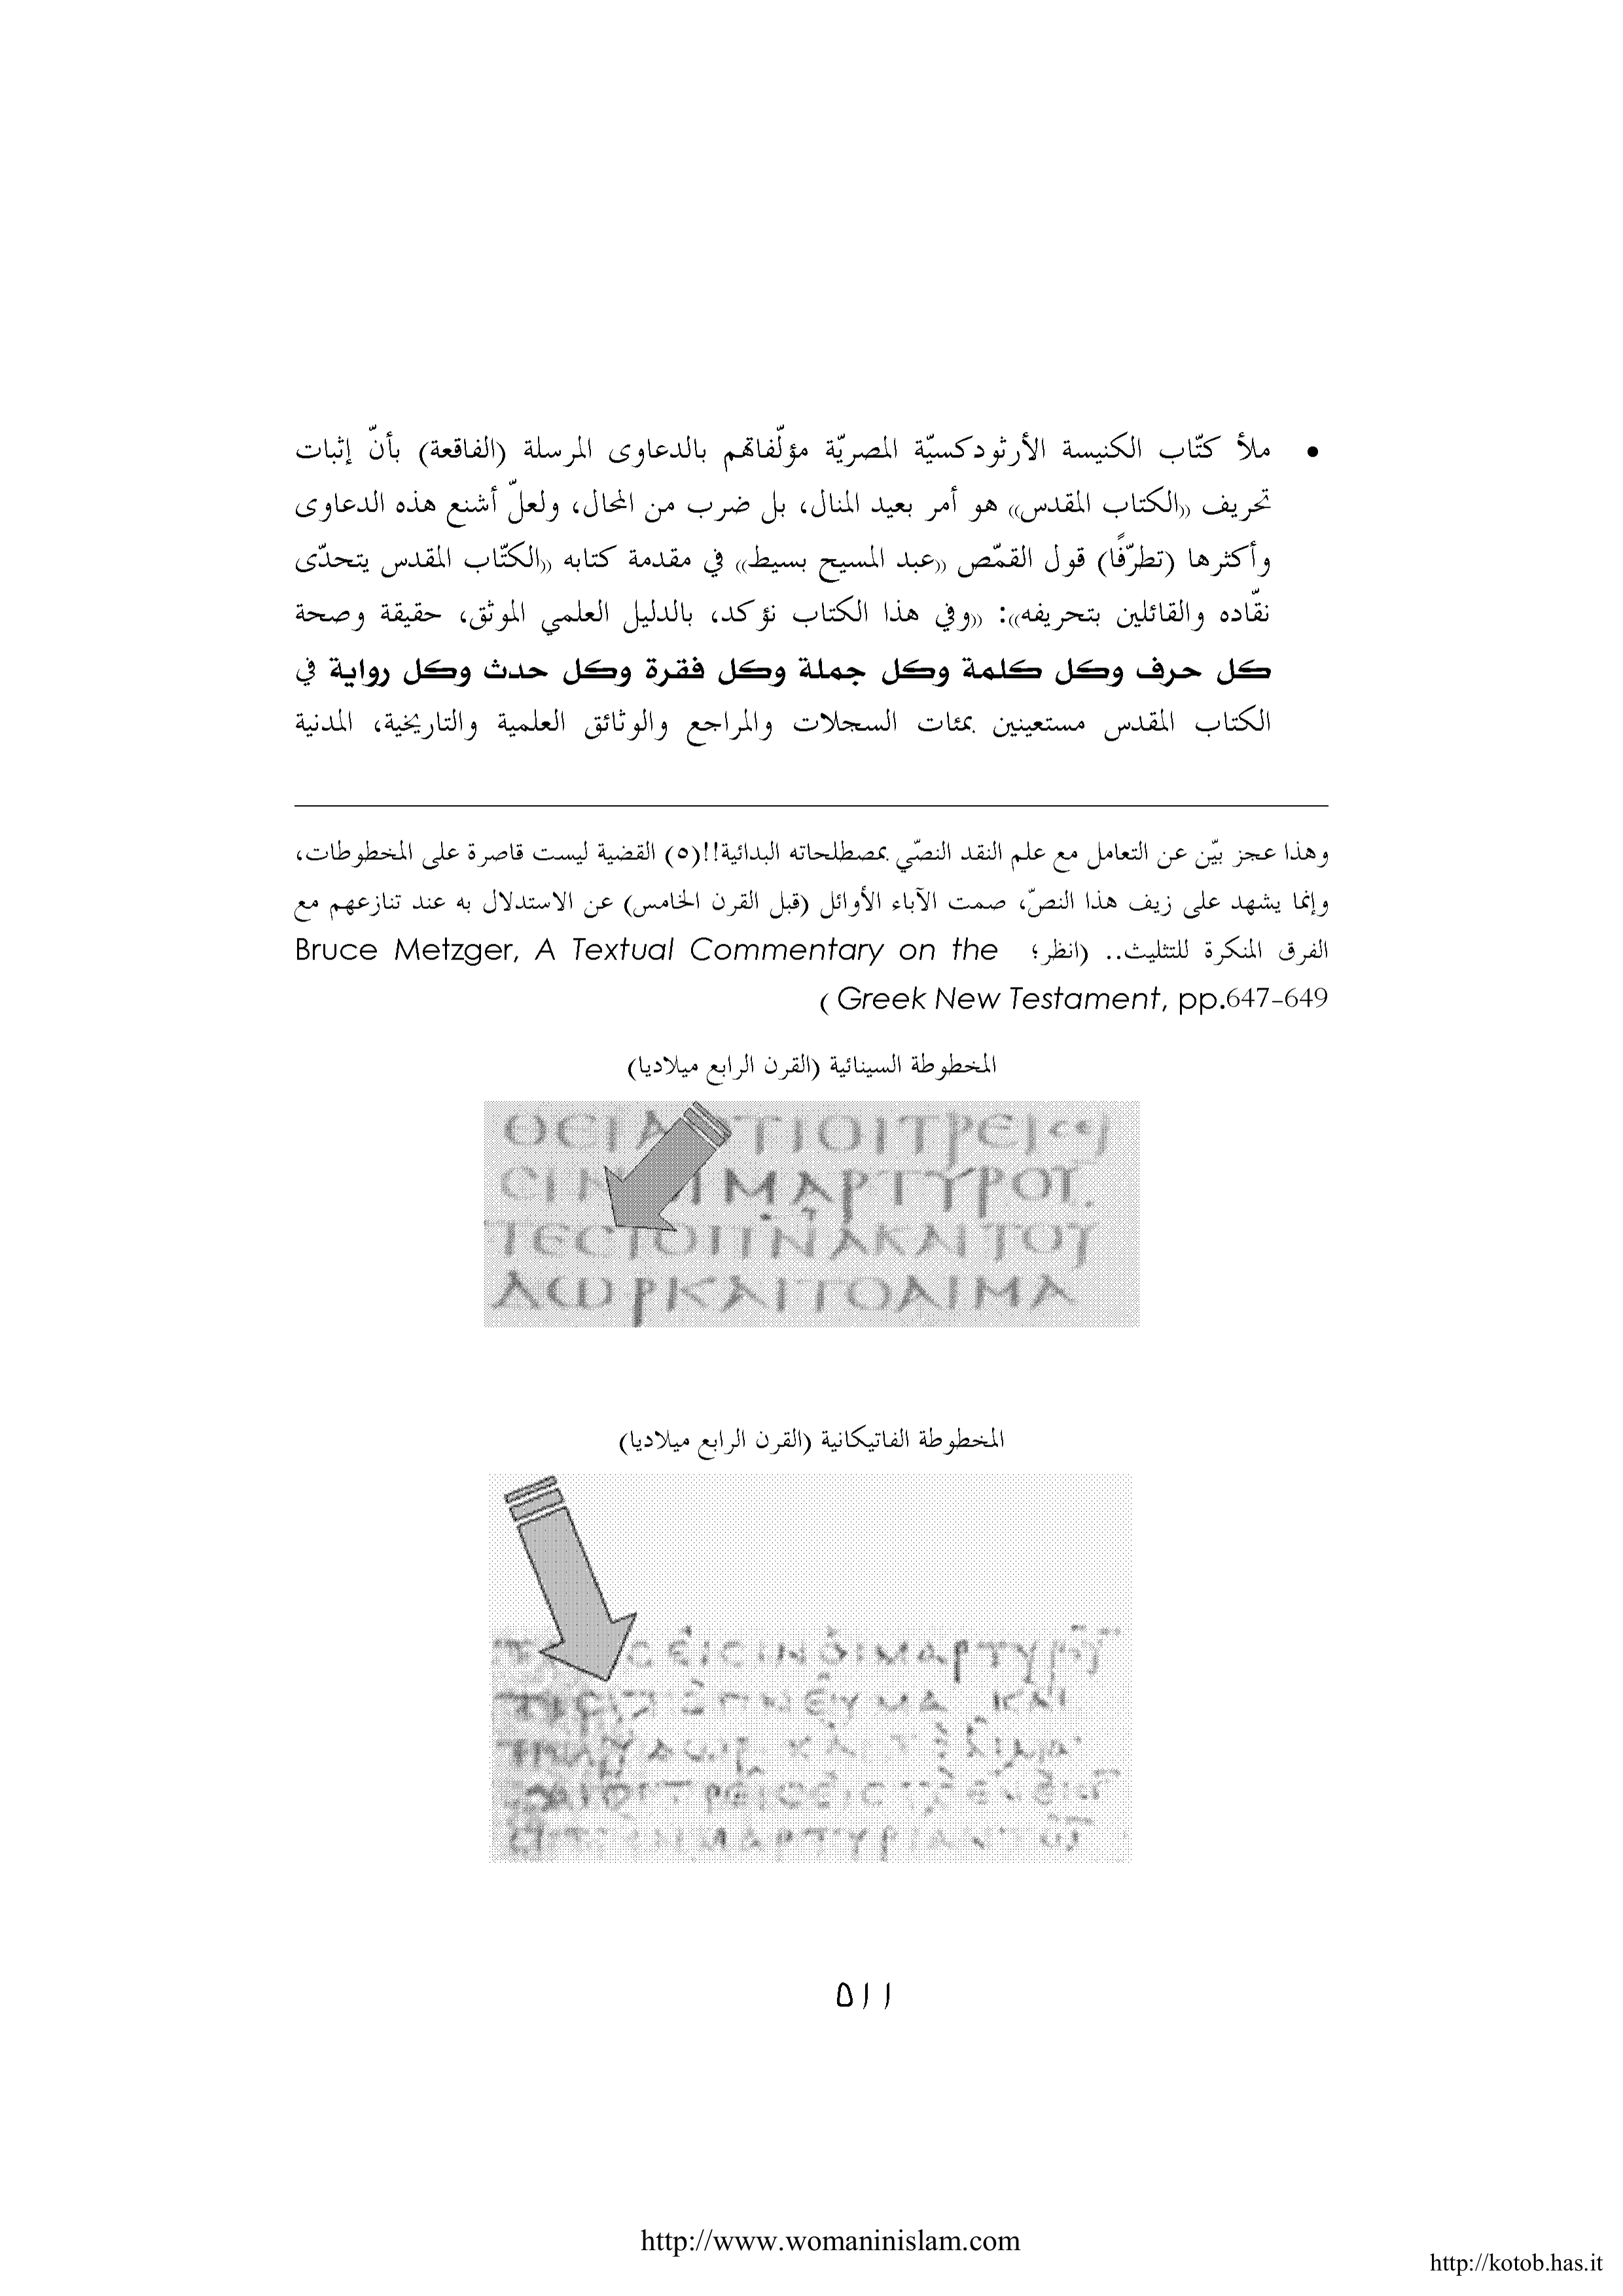 • ملأ كتّاب الكنيسة الأرثودكسيّة المصريّة مؤلّفاتهم بالدعاوى المرسلة (الفاقعة) بأنّ إثبات
تحريف «الكتاب المقدس» هو أمر بعيد المنال، بل ضرب من المحال، ولعلّ أشنع هذه الدعاوى
وأكثرها (تطرّفًا) قول القمّص «عبد المسيح بسيط» في مقدمة كتابه «الكتّاب المقدس يتحدّى
نقّاده والقائلين بتحريفه»: «وفي هذا الكتاب نؤكد، بالدليل العلمي الموثق، حقيقة وصحة
كل حرف وكل كلمة وكل جملة وكل فقرة وكل حدث وكل رواية في
الكتاب المقدس مستعينين بمئات السجلات والمراجع والوثائق العلمية والتاريخية، المدنية
وهذا عجز بيّن عن التعامل مع علم النقد النصّي بمصطلحاته البدائية!!(٥) القضية ليست قاصرة على المخطوطات،
وإنما يشهد على زيف هذا النصّ، صمت الآباء الأوائل (قبل القرن الخامس) عن الاستدلال به عند تنازعهم مع
الفرق المنكرة للتثليث.. (انظر؛ Bruce Metzger, A Textual Commentary on the
Greek New Testament, pp.647-649 )
المخطوطة السينائية (القرن الرابع ميلاديا)
ΜΑΡΤΥΡΟΥ
ΤΕϹΤΟΠΝΑΚΑΙΤΟΥ
ΔΩΡΚΑΙΤΟΑΙΜΑ
المخطوطة الفاتيكانية (القرن الرابع ميلاديا)
ϹΕΙϹΙΝΟΙΜΑΡΤΥΡΟΥ
٥١١
http://www.womaninislam.com
http://kotob.has.it